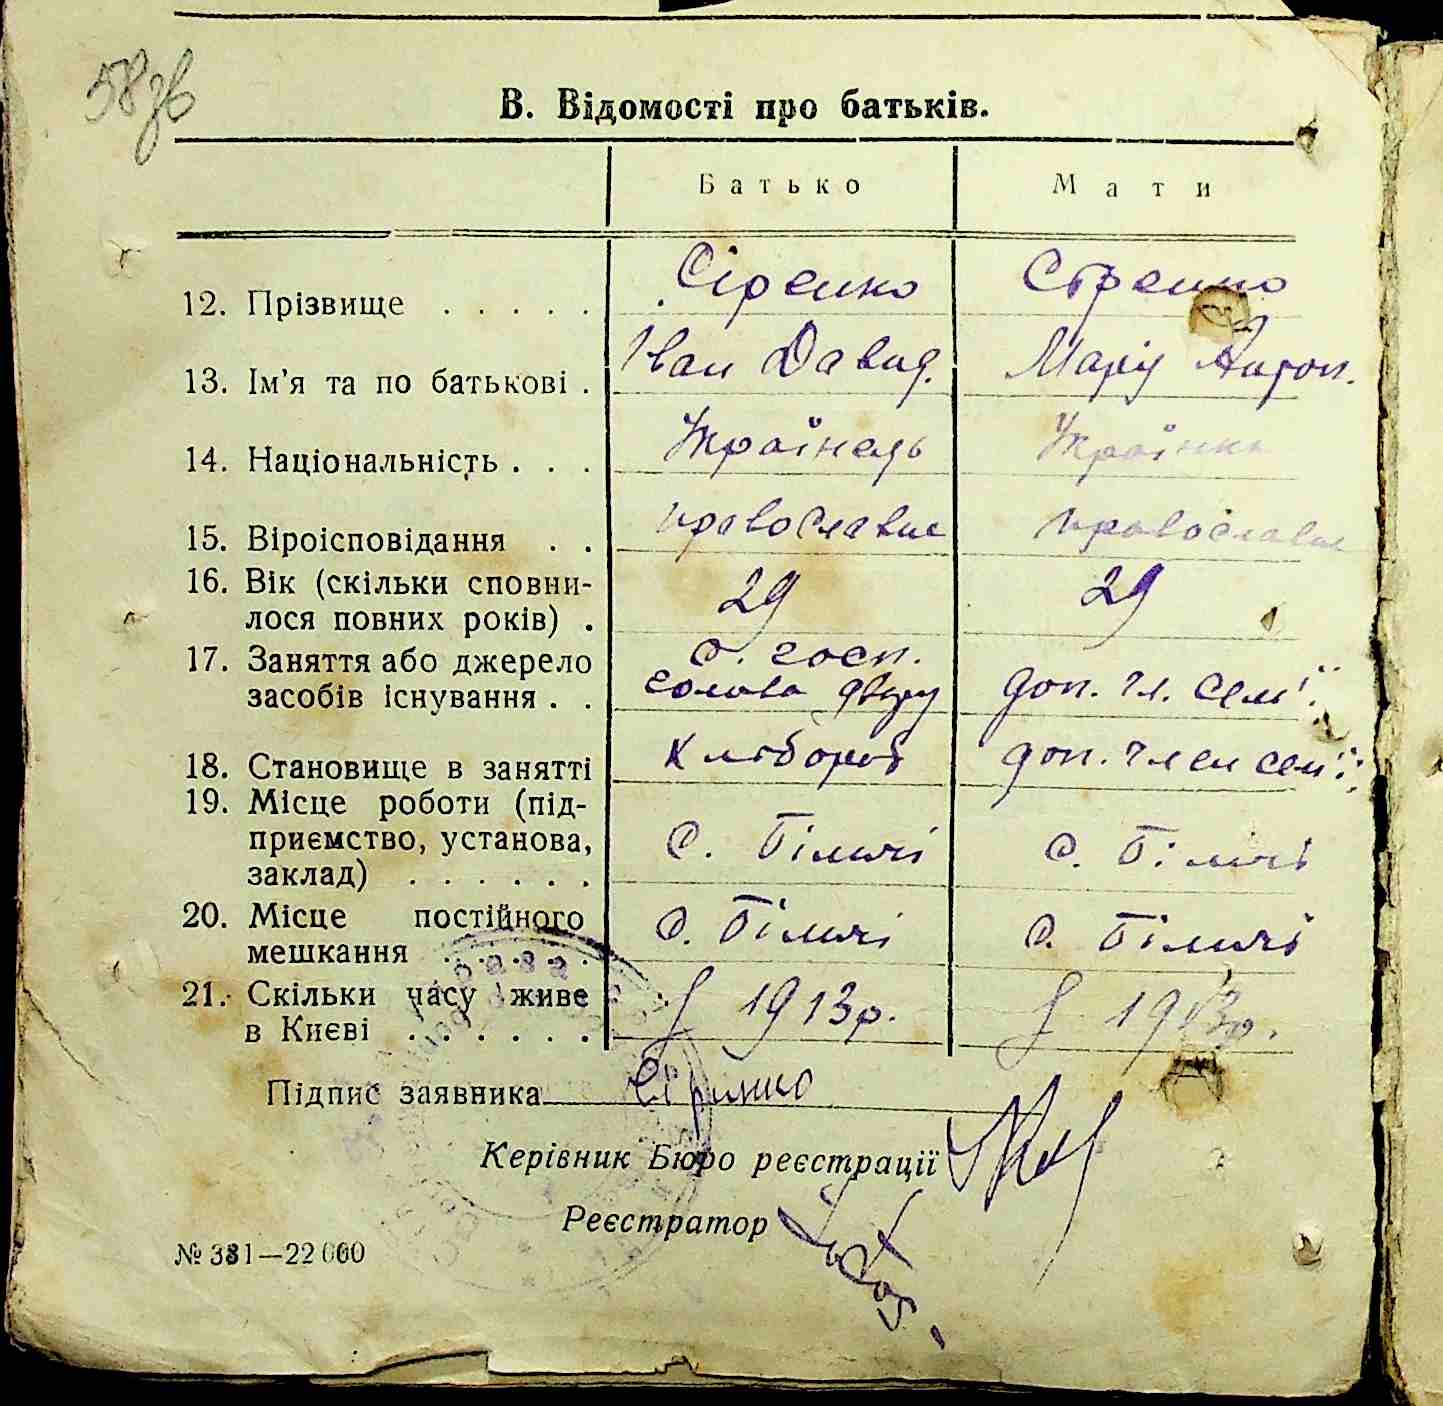 58зв
В. Відомості про батьків.
Батько Мати
12. Прізвище . . . . . Сіренко Сіренко
13. Ім'я та по батькові . Іван Давид. Марія Антон.
14. Національність . . . Українець Українка
15. Віроісповідання . . православне православне
16. Вік (скільки сповни-
лося повних років) . 29 29
17. Заняття або джерело с. госп.
засобів існування . . голова двору доп. чл. сем'ї
18. Становище в занятті хлібороб доп. член сем'ї
19. Місце роботи (під-
приємство, установа,
заклад) . . . . . . с. Біличі с. Біличі
20. Місце постійного
мешкання . . . . . . с. Біличі с. Біличі
21. Скільки часу живе
в Києві . . . . . . З 1913р. З 1913р.
Підпис заявника Сіренко
Керівник Бюро реєстрації
Реєстратор
№ 381—22000